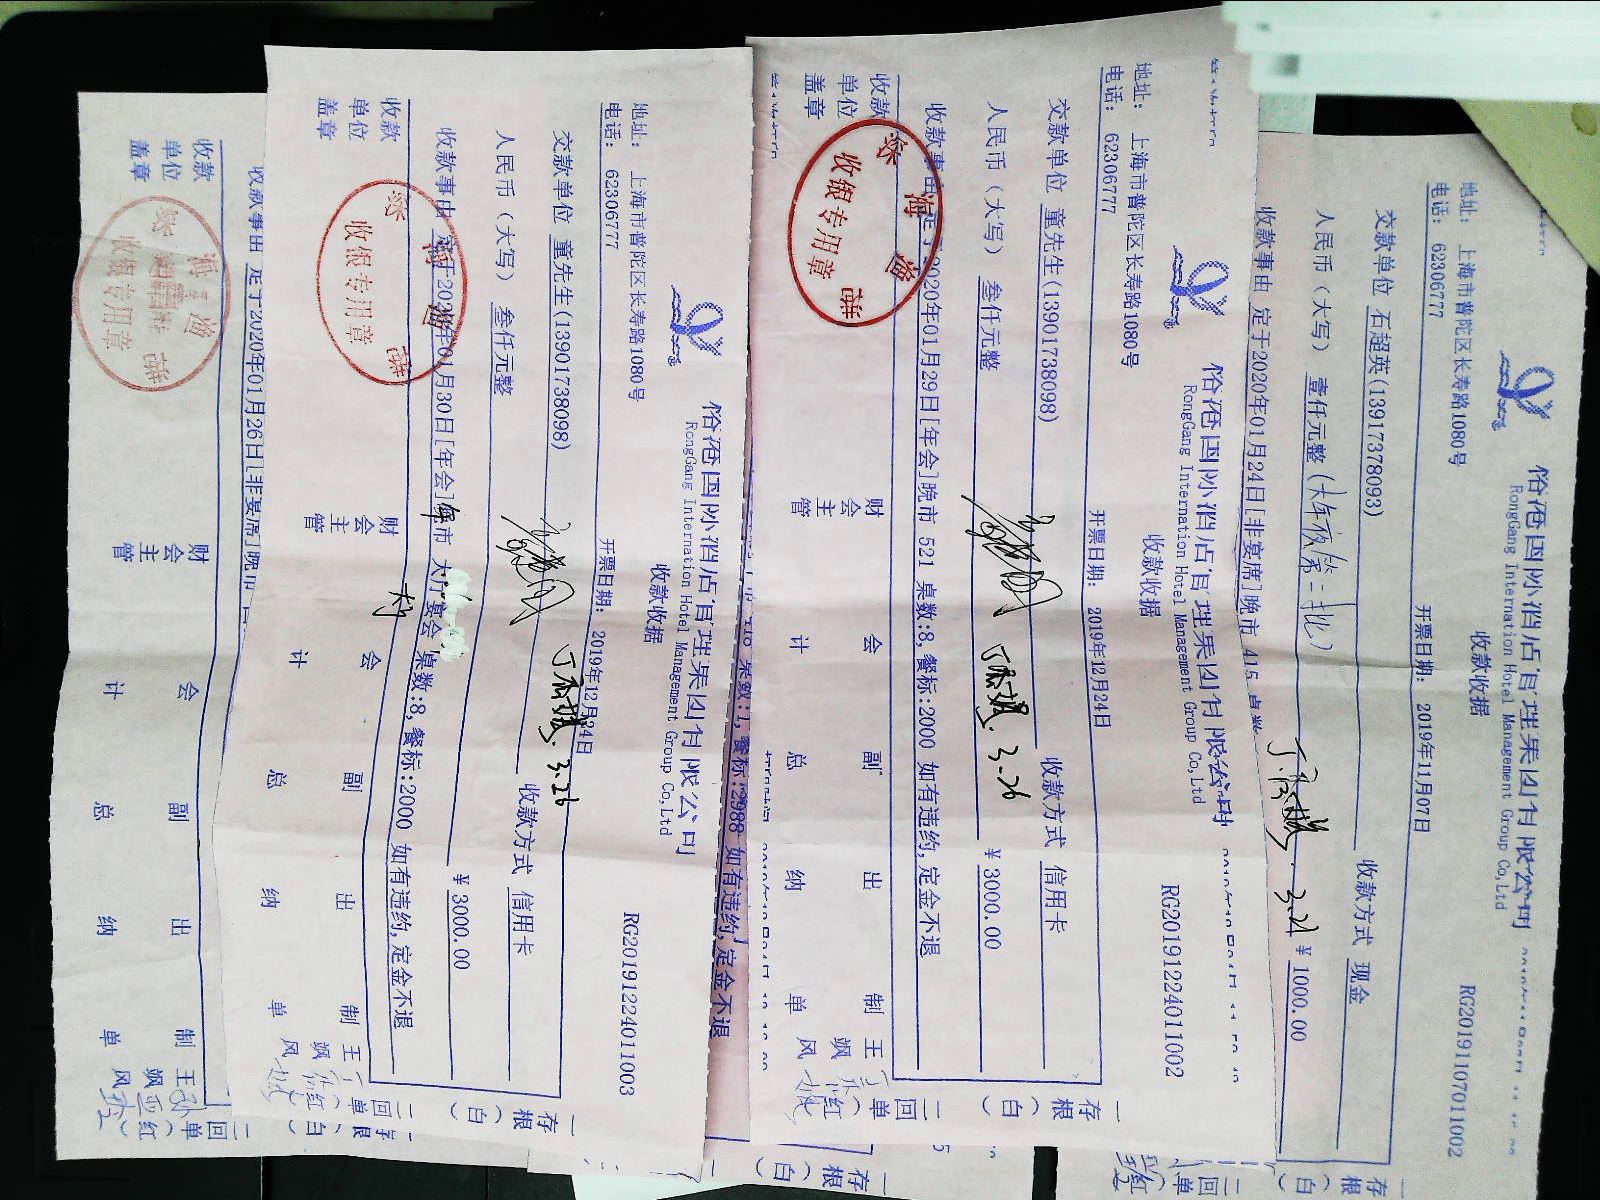 RongGang International Hotel Management Group Co,Ltd
收款收据
地址： 上海市普陀区长寿路1080号
电话： 62306777
开票日期： 2019年11月07日
RG20191107011002
交款单位 石超英(13917378093)
收款方式 现金
人民币（大写） 壹仟元整
￥ 1000.00
丁
收款事由 定于2020年01月24日[非宴席]晚市 415
存根（白）
二回单（红）
RongGang International Hotel Management Group Co,Ltd
收款收据
地址： 上海市普陀区长寿路1080号
电话： 62306777
开票日期： 2019年12月24日
RG20191224011002
交款单位 童先生(13901738098)
收款方式 信用卡
人民币（大写） 叁仟元整
￥ 3000.00
3.26
收款事由 定于2020年01月29日[年会]晚市 521 桌数:8,餐标:2000 如有违约,定金不退
收款单位盖章
财会主管
会计
副总
出纳
制单
王飒风
一存根（白）
二回单（红）
收银专用章
RongGang International Hotel Management Group Co,Ltd
收款收据
地址： 上海市普陀区长寿路1080号
电话： 62306777
开票日期： 2019年12月24日
RG20191224011003
交款单位 童先生(13901738098)
收款方式 信用卡
人民币（大写） 叁仟元整
￥ 3000.00
3.26
收款事由 定于2020年01月30日[年会] 市 大厅宴会 桌数:8,餐标:2000 如有违约,定金不退
收款单位盖章
财会主管
会计
副总
出纳
制单
王飒风
一存根（白）
二回单（红）
收银专用章
桌数:1,餐标:2988 如有违约,定金不退
收款事由 定于2020年01月26日[非宴席]晚市
收款单位盖章
财会主管
会计
副总
出纳
制单
王飒风
二回单（红）
收银专用章